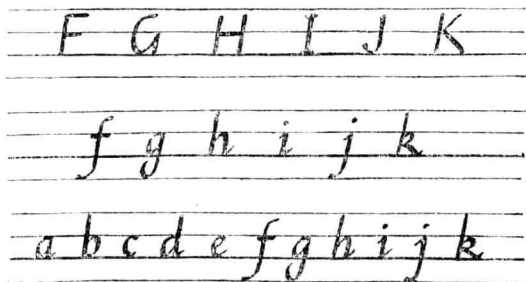 F G H I J K
f g h i j k
a b c d e f g h i j k